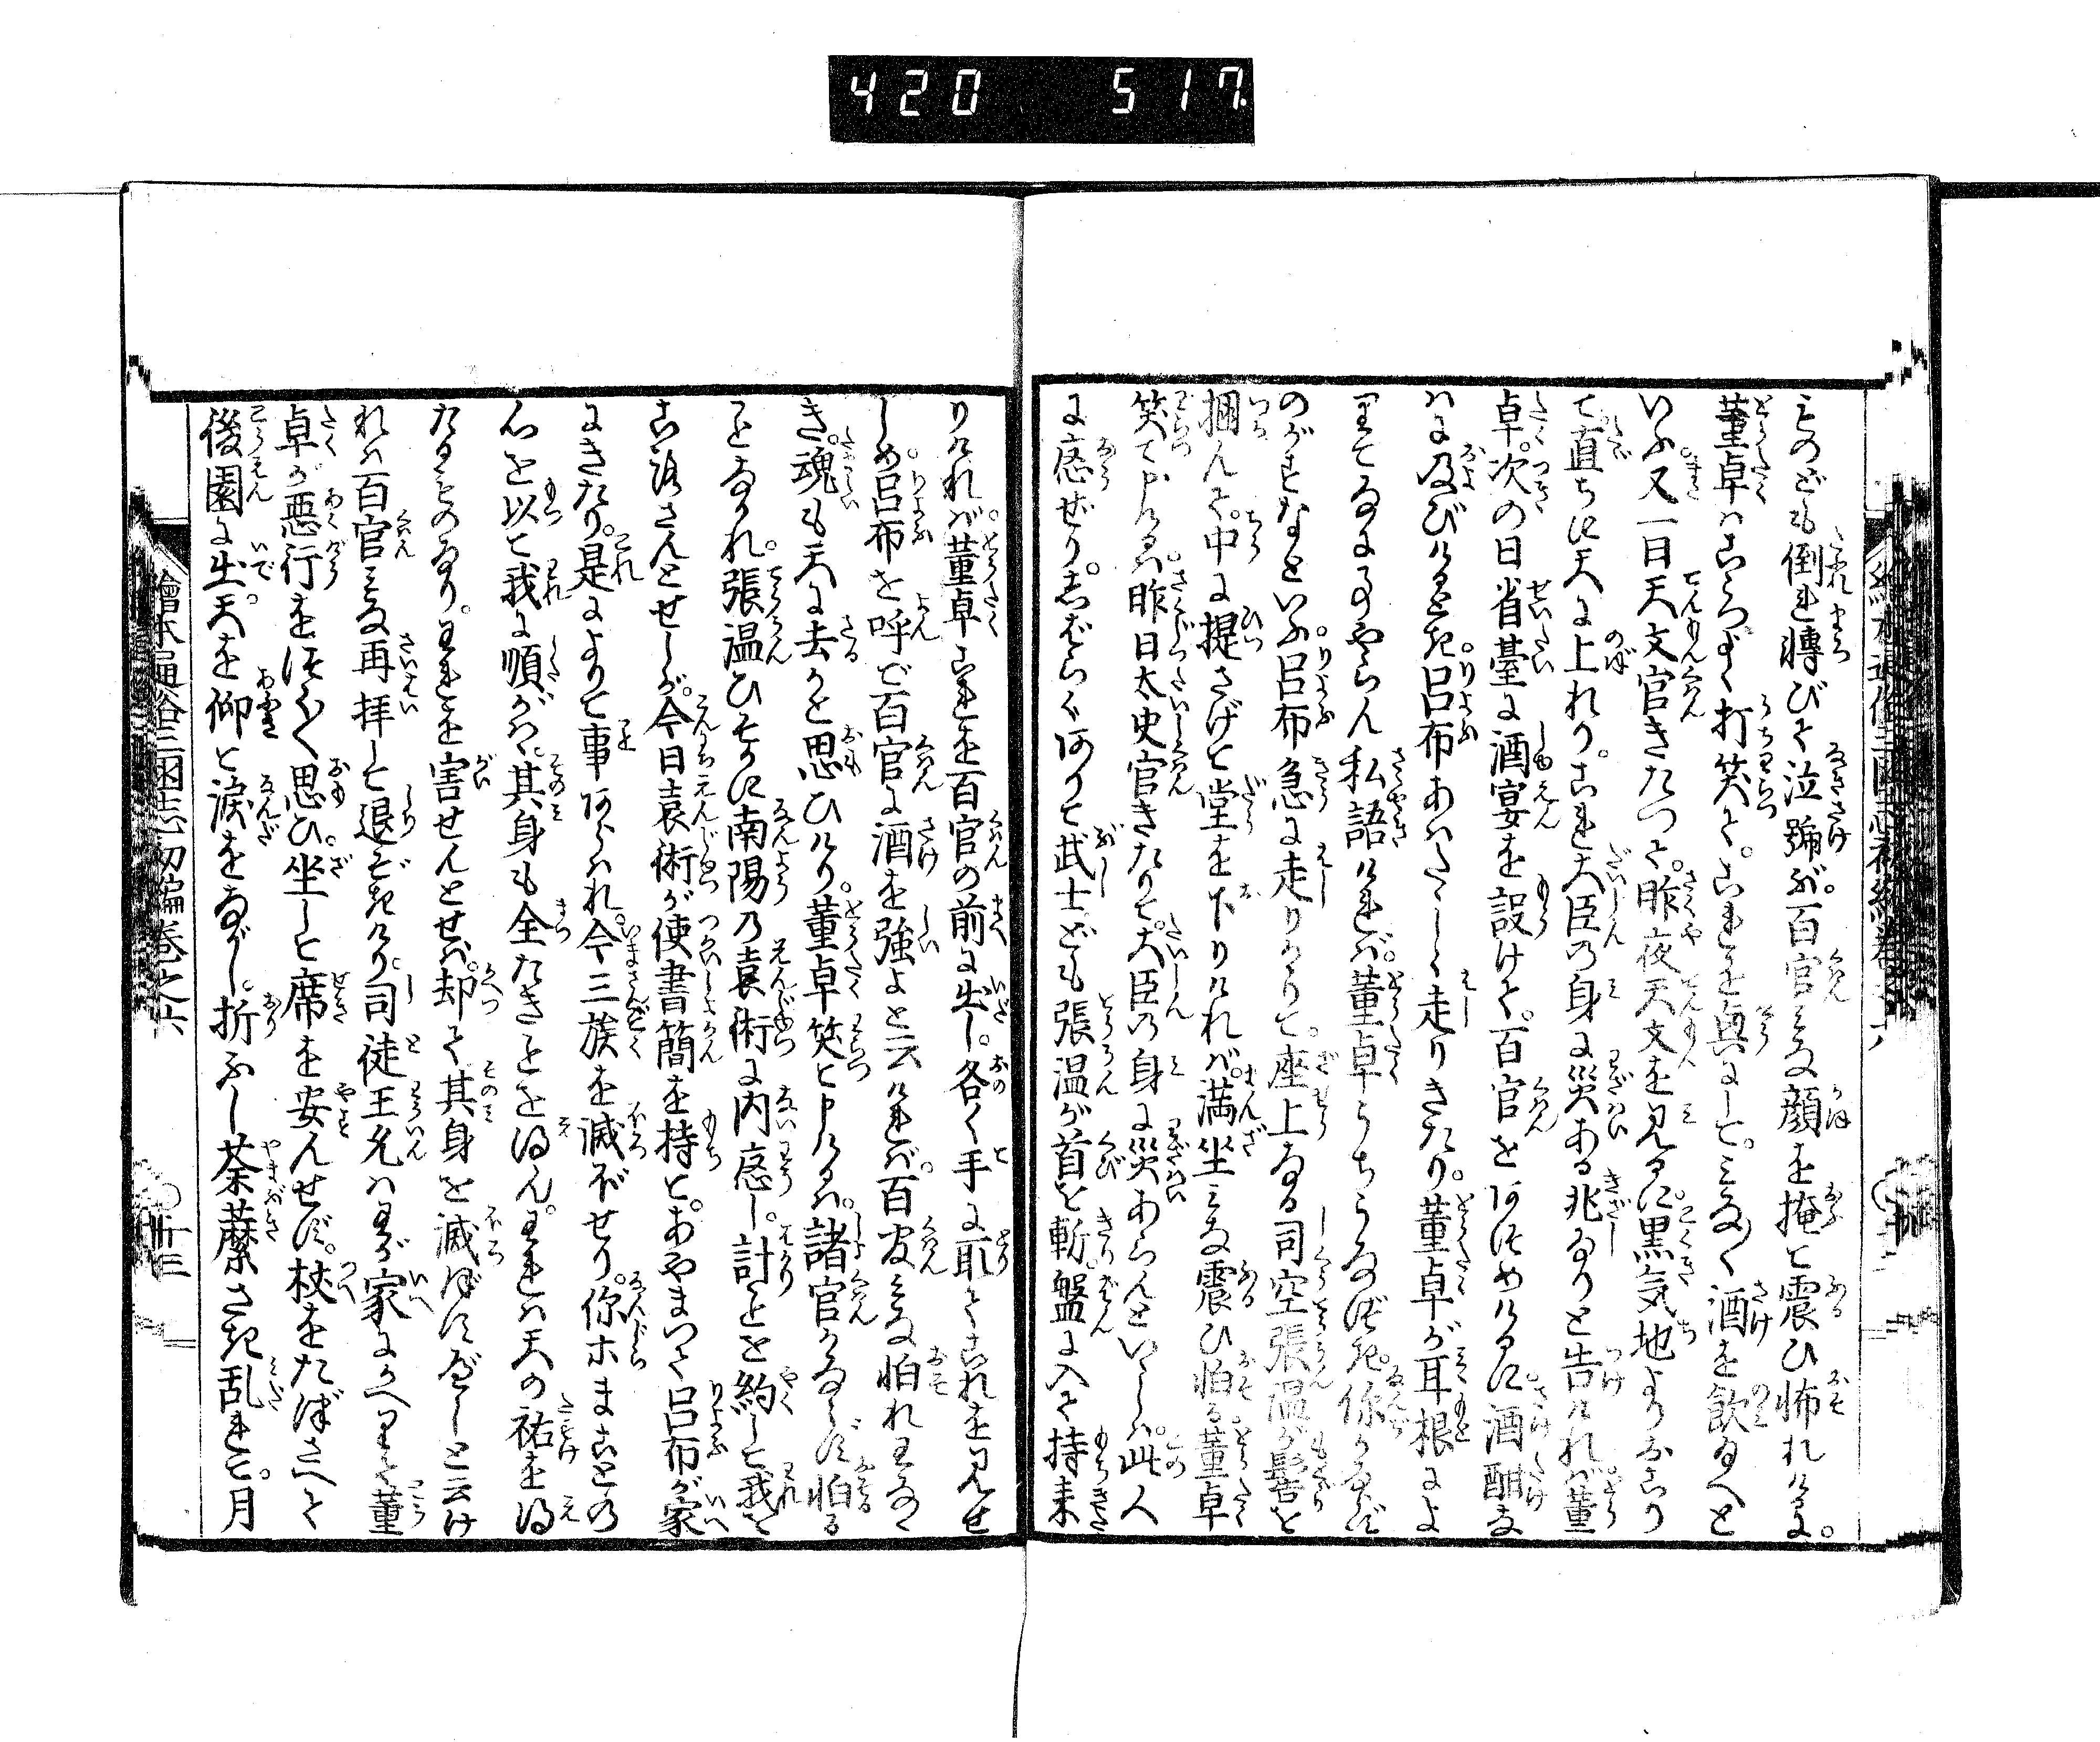 420 517
ものども倒れ轉びて泣號ぶ。百官みな顔を掩て震ひ怖れけるに。
董卓はこゝろよく打笑て。これを興にして。みな〳〵酒を飲給へと
いふ又一日天文官きたつて。昨夜天文を見るに。黒気地よりおこり
て直ちに天に上れり。これ大臣の身に災ある兆なりと告ければ。董
卓。次の日省臺に酒宴を設けて。百官をあつめけるに。酒酣な
はに及びけるとき。呂布あはたゝしく走りきたり。董卓が耳根によ
りてなに事やらん私語ければ。董卓うちうなづき。你かならず
のがすなといふ。呂布急に走りかゝりて。座上なる司空張温が髻を
掴んで。中に提さげて堂を下りければ。満坐みな震ひ怕る。董卓
笑て申けるは。昨日太史官きたりて。大臣の身に災あらんといゝしは。此人
に應ぜり。しばらくありて武士ども張温が首を斬。盤に入て持来
りければ。董卓これを百官の前に出し。各〳〵手に取てこれを見せ
しめ。呂布を呼で百官に酒を強よと云ければ。百官みな怕れわなゝ
き。魂も天に去かと思ひけり。董卓笑て申けるは。諸官かならず怕る
ことなかれ。張温ひそかに南陽の袁術に内應し。計ことを約して我を
亡ぼさんとせしが。今日袁術が使書簡を持て。あやまつて呂布が家
にきたり。是によりて事あらはれ。今三族を滅ぼせり。你ホまことの
心を以て我に順がはゞ。其身も全たきことを得ん。われは天の祐を得
たるものなり。われを害せんとせば。却て其身を滅ぼすべしと云け
れは百官みな再拝して退ぞきけり。司徒王允はわが家にかへりて董
卓が悪行をつく〴〵思ひ。坐して席を安んせず。杖をたづさへて
後園に出。天を仰て涙をながし。折ふし荼蘼さき乱れて。月
繪本通俗三國志初編巻之六
廿三